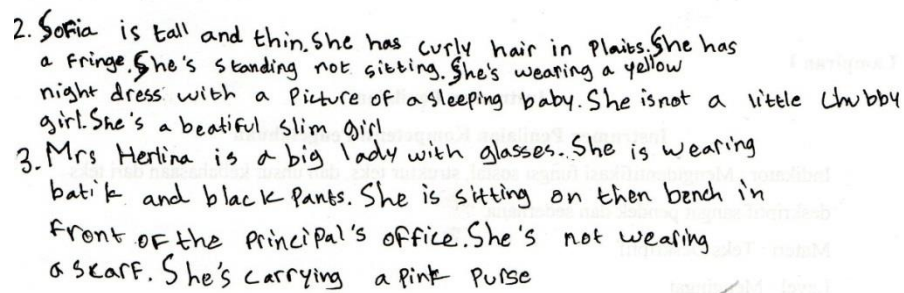 2. Sofia is tall and thin. She has curly hair in Plaits. She has
a fringe. She's standing not sitting. She's wearing a yellow
night dress with a Picture of a sleeping baby. She is not a little Chubby
girl. She's a beatiful slim girl
3. Mrs Herlina is a big lady with glasses. She is wearing
batik and black Pants. She is sitting on then bench in
front of the Principal's office. She's not wearing
a Skarf. She's carrying a Pink Purse